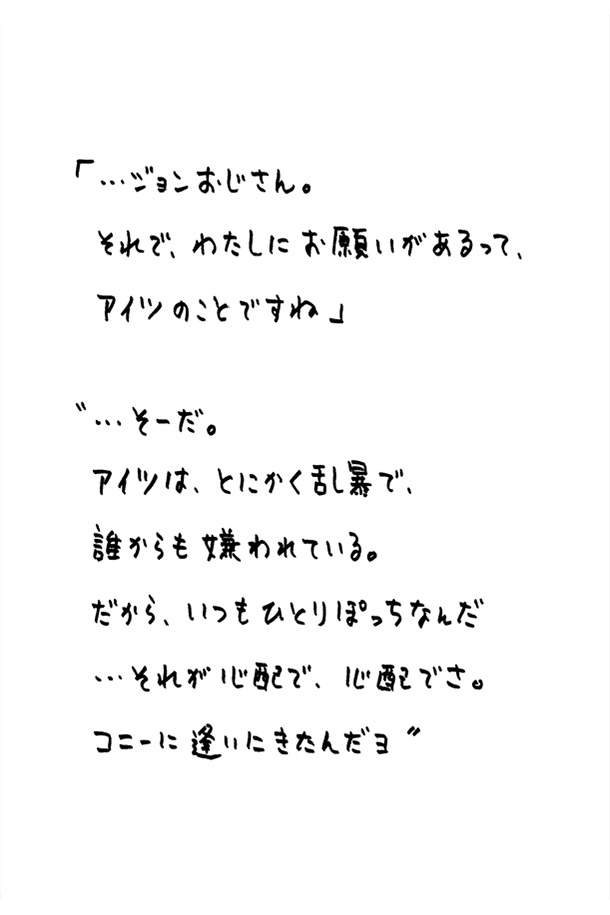 「…ジョンおじさん。
それで、わたしにお願いがあるって、
アイツのことですね」
〝…そーだ。
アイツは、とにかく乱暴で、
誰からも嫌われている。
だから、いつもひとりぽっちなんだ
…それが心配で、心配でさ。
コニーに逢いにきたんだヨ〞